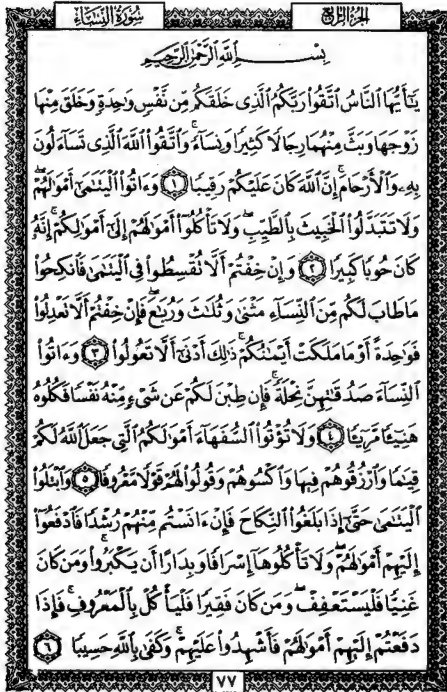 سُورَةُ النِّسَاءِ
الجُزءُ الرَّابِعُ
بِسْمِ اللَّهِ الرَّحْمَٰنِ الرَّحِيمِ
يَٰٓأَيُّهَا ٱلنَّاسُ ٱتَّقُوا۟ رَبَّكُمُ ٱلَّذِى خَلَقَكُم مِّن نَّفْسٍ وَٰحِدَةٍ وَخَلَقَ مِنْهَا
زَوْجَهَا وَبَثَّ مِنْهُمَا رِجَالًا كَثِيرًا وَنِسَآءً ۚ وَٱتَّقُوا۟ ٱللَّهَ ٱلَّذِى تَسَآءَلُونَ
بِهِۦ وَٱلْأَرْحَامَ ۚ إِنَّ ٱللَّهَ كَانَ عَلَيْكُمْ رَقِيبًا ١ وَءَاتُوا۟ ٱلْيَتَٰمَىٰٓ أَمْوَٰلَهُمْ ۖ
وَلَا تَتَبَدَّلُوا۟ ٱلْخَبِيثَ بِٱلطَّيِّبِ ۖ وَلَا تَأْكُلُوٓا۟ أَمْوَٰلَهُمْ إِلَىٰٓ أَمْوَٰلِكُمْ ۚ إِنَّهُۥ
كَانَ حُوبًا كَبِيرًا ٢ وَإِنْ خِفْتُمْ أَلَّا تُقْسِطُوا۟ فِى ٱلْيَتَٰمَىٰ فَٱنكِحُوا۟
مَا طَابَ لَكُم مِّنَ ٱلنِّسَآءِ مَثْنَىٰ وَثُلَٰثَ وَرُبَٰعَ ۖ فَإِنْ خِفْتُمْ أَلَّا تَعْدِلُوا۟
فَوَٰحِدَةً أَوْ مَا مَلَكَتْ أَيْمَٰنُكُمْ ۚ ذَٰلِكَ أَدْنَىٰٓ أَلَّا تَعُولُوا۟ ٣ وَءَاتُوا۟
ٱلنِّسَآءَ صَدُقَٰتِهِنَّ نِحْلَةً ۚ فَإِن طِبْنَ لَكُمْ عَن شَىْءٍ مِّنْهُ نَفْسًا فَكُلُوهُ
هَنِيٓـًٔا مَّرِيٓـًٔا ٤ وَلَا تُؤْتُوا۟ ٱلسُّفَهَآءَ أَمْوَٰلَكُمُ ٱلَّتِى جَعَلَ ٱللَّهُ لَكُمْ
قِيَٰمًا وَٱرْزُقُوهُمْ فِيهَا وَٱكْسُوهُمْ وَقُولُوا۟ لَهُمْ قَوْلًا مَّعْرُوفًا ٥ وَٱبْتَلُوا۟
ٱلْيَتَٰمَىٰ حَتَّىٰٓ إِذَا بَلَغُوا۟ ٱلنِّكَاحَ فَإِنْ ءَانَسْتُم مِّنْهُمْ رُشْدًا فَٱدْفَعُوٓا۟
إِلَيْهِمْ أَمْوَٰلَهُمْ ۖ وَلَا تَأْكُلُوهَآ إِسْرَافًا وَبِدَارًا أَن يَكْبَرُوا۟ ۚ وَمَن كَانَ
غَنِيًّا فَلْيَسْتَعْفِفْ ۖ وَمَن كَانَ فَقِيرًا فَلْيَأْكُلْ بِٱلْمَعْرُوفِ ۚ فَإِذَا
دَفَعْتُمْ إِلَيْهِمْ أَمْوَٰلَهُمْ فَأَشْهِدُوا۟ عَلَيْهِمْ ۚ وَكَفَىٰ بِٱللَّهِ حَسِيبًا ٦
٧٧